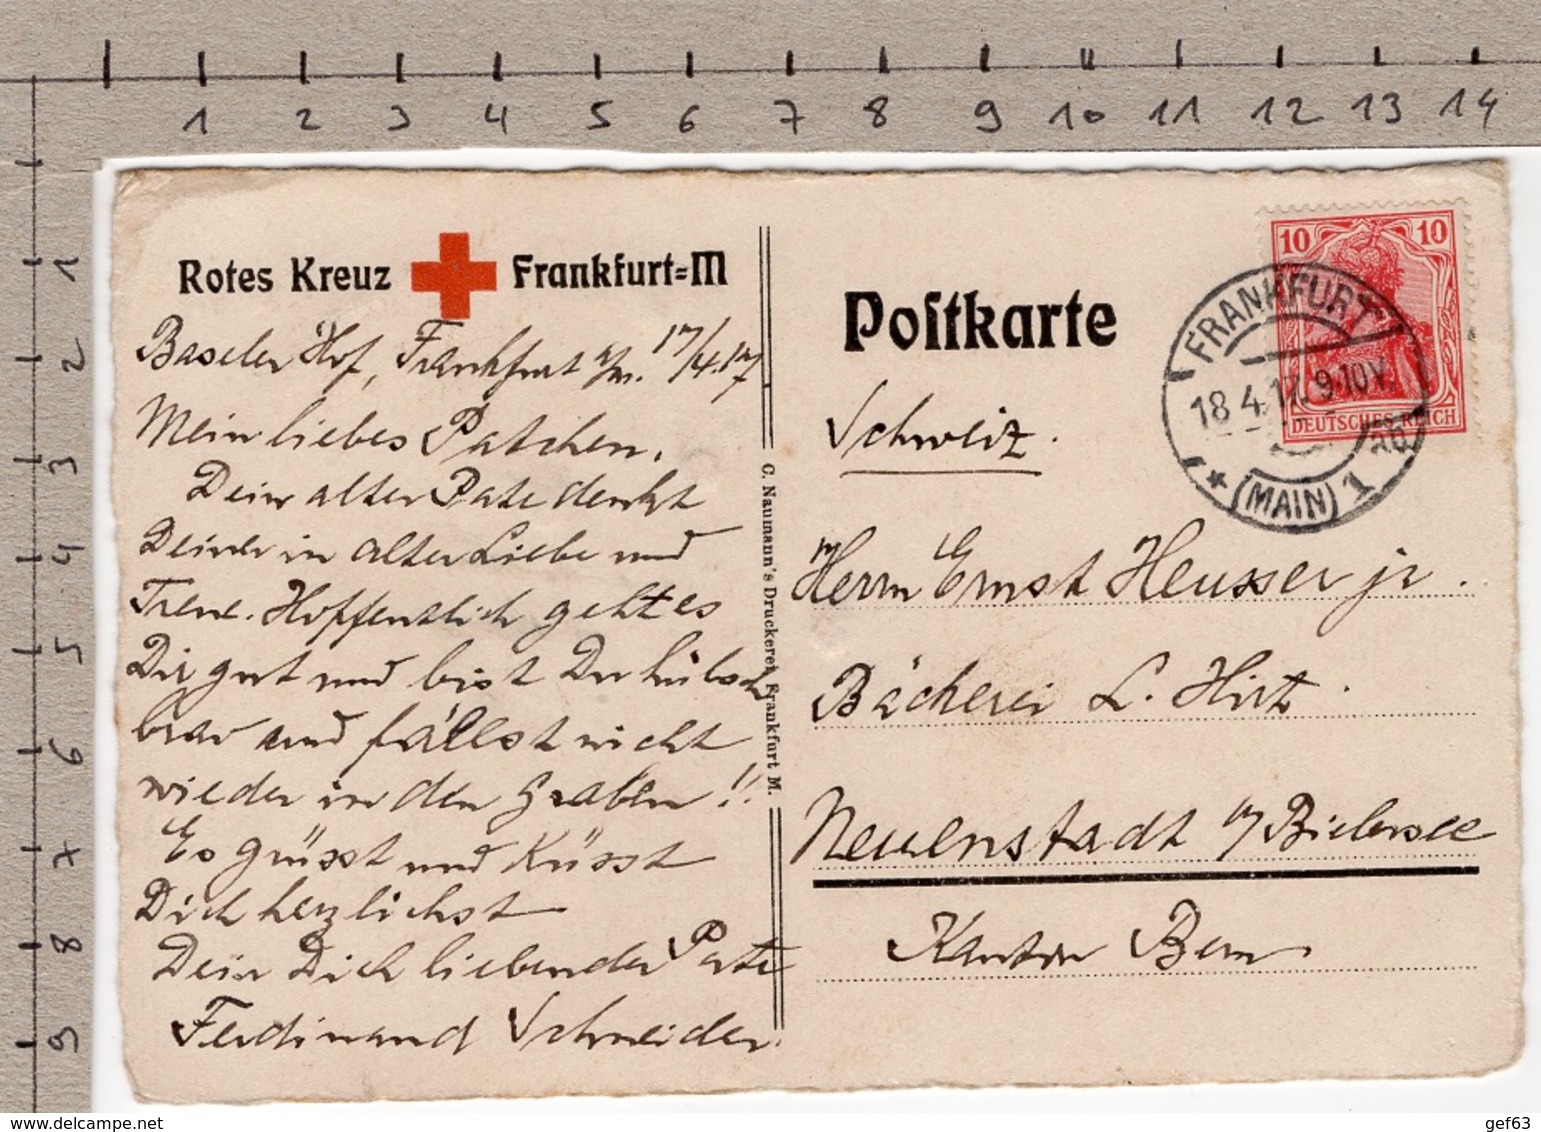 1 2 3 4 5 6 7 8 9 10 11 12 13 14
1
2
3
4
5
6
7
8
9
Rotes Kreuz Frankfurt=M
Baseler Hof, Frankfurt a/m. 17/4.17
Mein liebes Patchen.
Dein alter Pate denkt
Deiner in alter Liebe und
Treue. Hoffentlich geht es
Dir gut und bist Du hübsch
brav und fällst nicht
wieder in den Graben!!
Es grüsst und küsst
Dich herzlichst
Dein Dich liebender Pate
Ferdinand Schneider.
C. Naumann's Druckerei, Frankfurt M.
Poſtkarte
10 10
DEUTSCHES REICH
FRANKFURT
18.4.17.9-10V.
* (MAIN) 1
Schweiz.
Herrn Ernst Heusser jr.
Bäckerei L. Hirt.
Neuenstadt a/Bielersee
Kanton Bern
gef63